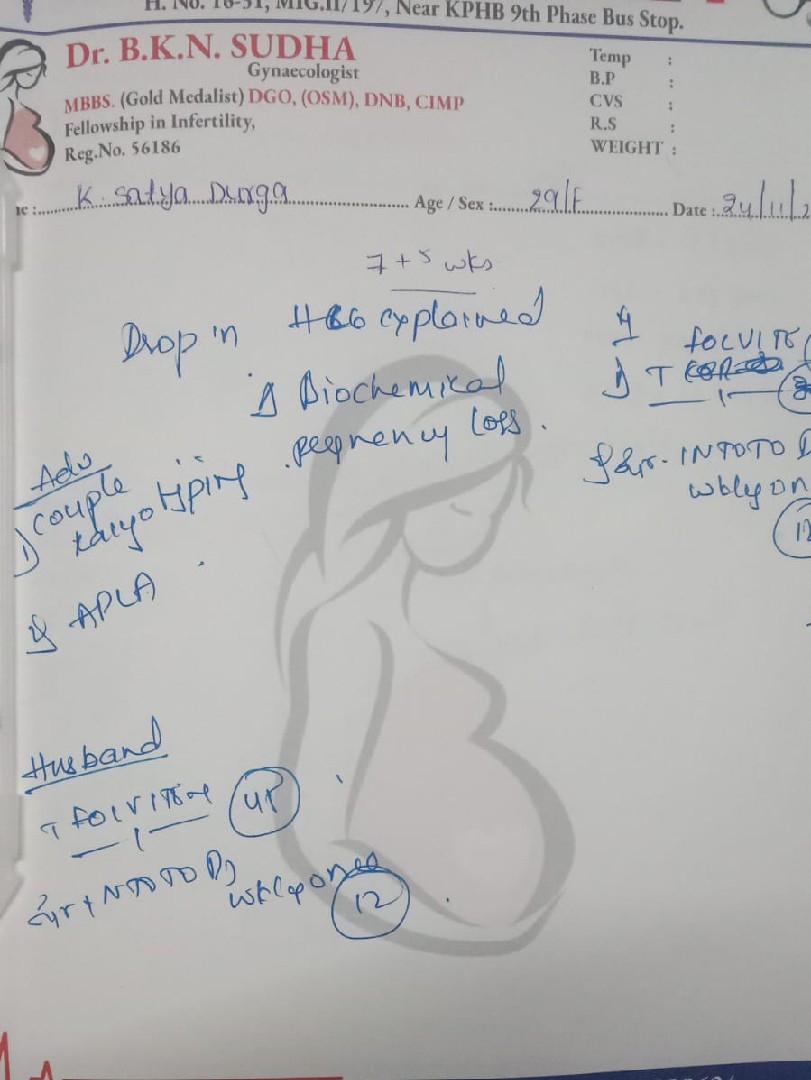 H. No. 16-31, MIG.II/197, Near KPHB 9th Phase Bus Stop.
Dr. B.K.N. SUDHA
Gynaecologist
MBBS. (Gold Medalist) DGO, (OSM), DNB, CIMP
Fellowship in Infertility,
Reg.No. 56186
Temp :
B.P :
CVS :
R.S :
WEIGHT :
K. Satya Durga Age / Sex : 29/F Date : 24/11/2
7 + 5 wks
Drop in HCG explained
1) Biochemical
pregnency loss.
FOLVITE
1) T
Syr. INTOTO D
wkly on
12
Adv
1) couple
karyotyping
2) APLA
Husband
T FOLVITE
1
Syr INTOTO D3
wkly once
12